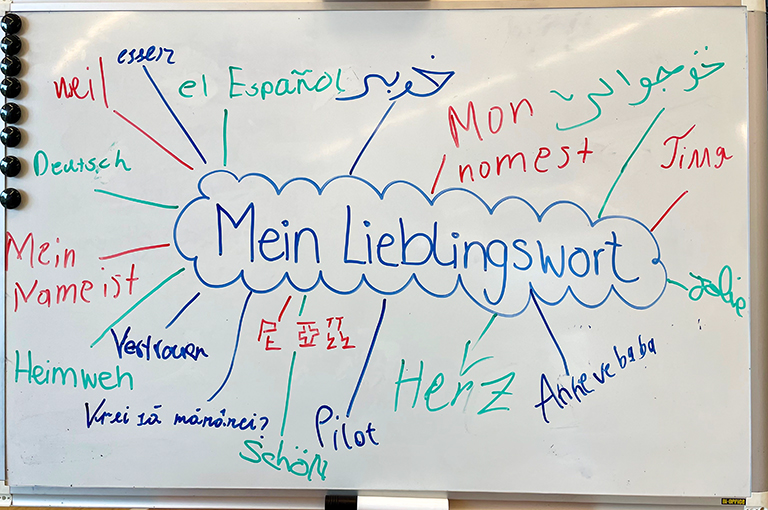 essen
weil
el Español
خوبی
Mon
nomest
Deutsch
Mein Lieblingswort
Mein
Name ist
Vertrauen
Heimweh
Vrei să mănânci?
Schön
Pilot
Herz
Anne ve baba
jolie
BI-OFFICE